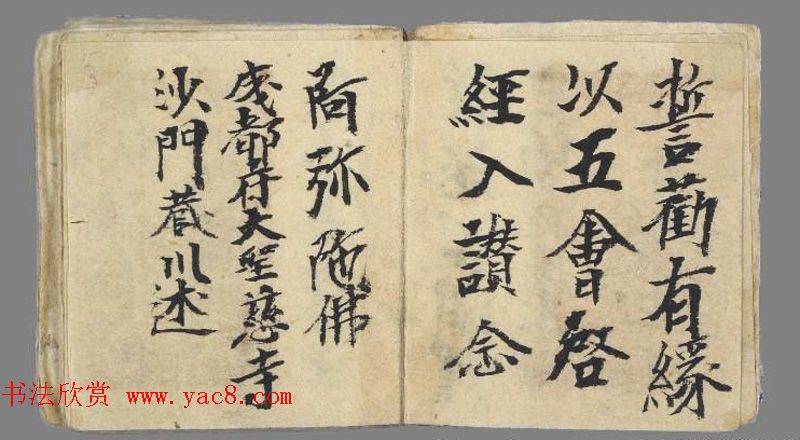 誓勸有緣
以五會啓
經入讃念
阿弥陁佛
成都府大聖慈寺
沙門藏川述
书法欣赏 www.yac8.com